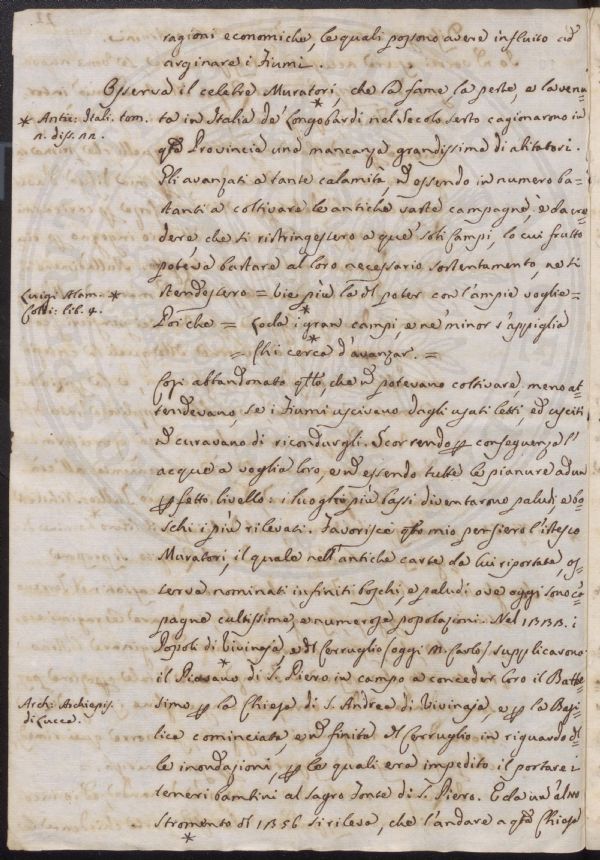 ragioni economiche, le quali possono avere influito ad
arginare i Fiumi.
Osserva il celebre Muratori, che la fame la peste, e la venu=
* Antiq: Itali. tom.
n. diss. nn.
ta in Italia de' Longobardi nel Secolo sesto cagionarono in
qta Provincia una mancanza grandissima di abitatori.
Gli avanzati a tante calamità, nō essendo in numero ba=
stanti a coltivare le antiche vaste campagne, è da cre=
dere, che si ristringessero a que' soli Campi, lo cui frutto
poteva bastare al loro necessario sostentamento, ne si
Luigi Alam. *
Colti: lib. 4.
stendessero = vie più là dl poter con l'ampie voglie =
Poi che = Loda i gran campi, e ne' minor s'appiglia
= Chi cerca d'avanzar. =
Così abbandonato qllo, che nō potevano coltivare, meno at=
tendevano, se i Fiumi uscivano dagli usati letti, ed usciti
nō curavano di ricondurgli. Scorrendo p conseguenza l'
acque a voglia loro, e nō essendo tutte le pianure ad un
pfetto livello: i luoghi più bassi diventarono paludi, e bo=
schi i più rilevati. Favorisce qto mio pensiero l'istesso
Muratori, il quale nell'antiche carte da lui riportate, os=
serva nominati infiniti boschi, e paludi ove oggi sono cā=
pagne cultissime, e numerose popolazioni. Nel 1333. i
Popoli di Vivinaja, e dl Cerruglio (oggi M. Carlo) supplicarono
il Piovano di S. Piero in campo a conceder loro il Batte=
Arch: Archiepis.
di Lucca.
simo p la Chiesa di S. Andrea di Vivinaja, e p la Basi=
lica cominciata, e nō finita dl Cerruglio in riguardo dl=
le inondazioni, p le quali era impedito il portare i
teneri bambini al sagro Fonte di S. Piero. E da un' alto
stromento dl 1356 si rileva, che l'andare a qta Chiesa
*